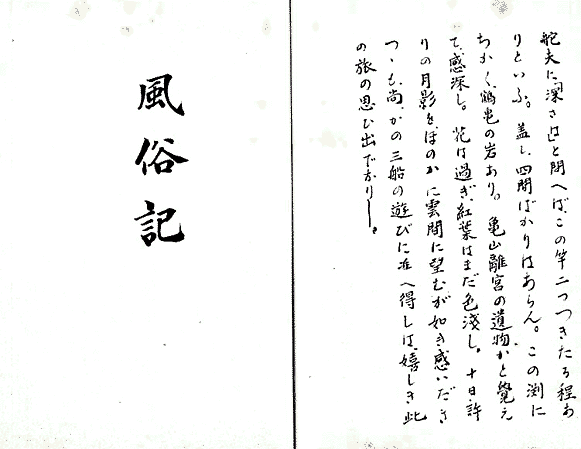 舵夫に「深さは」と問へば、この竿二つつきたる程あ
りといふ。蓋し四間ばかりはあらん。この渕に
ちかく鶴亀の岩あり。亀山離宮の遺物かと覺え
て、感深し。花は過ぎ、紅葉はまだ色淺し。十日許
りの月影をほのかに雲間に望むが如き感いだき
つゝも、尚、かの三船の遊びに准へ得しは、嬉しき此
の旅の思ひ出でなりし。
風俗記